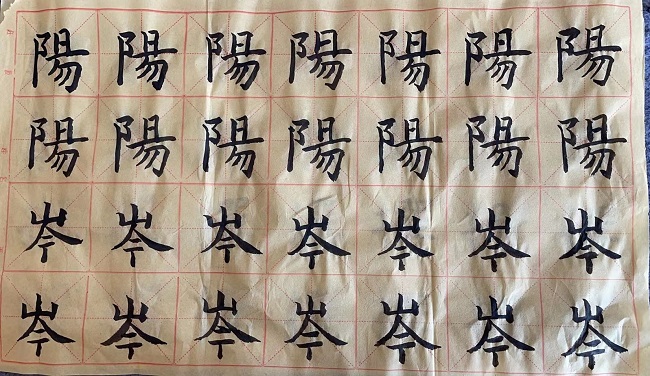 陽陽陽陽陽陽陽
陽陽陽陽陽陽陽
岑岑岑岑岑岑岑
岑岑岑岑岑岑岑